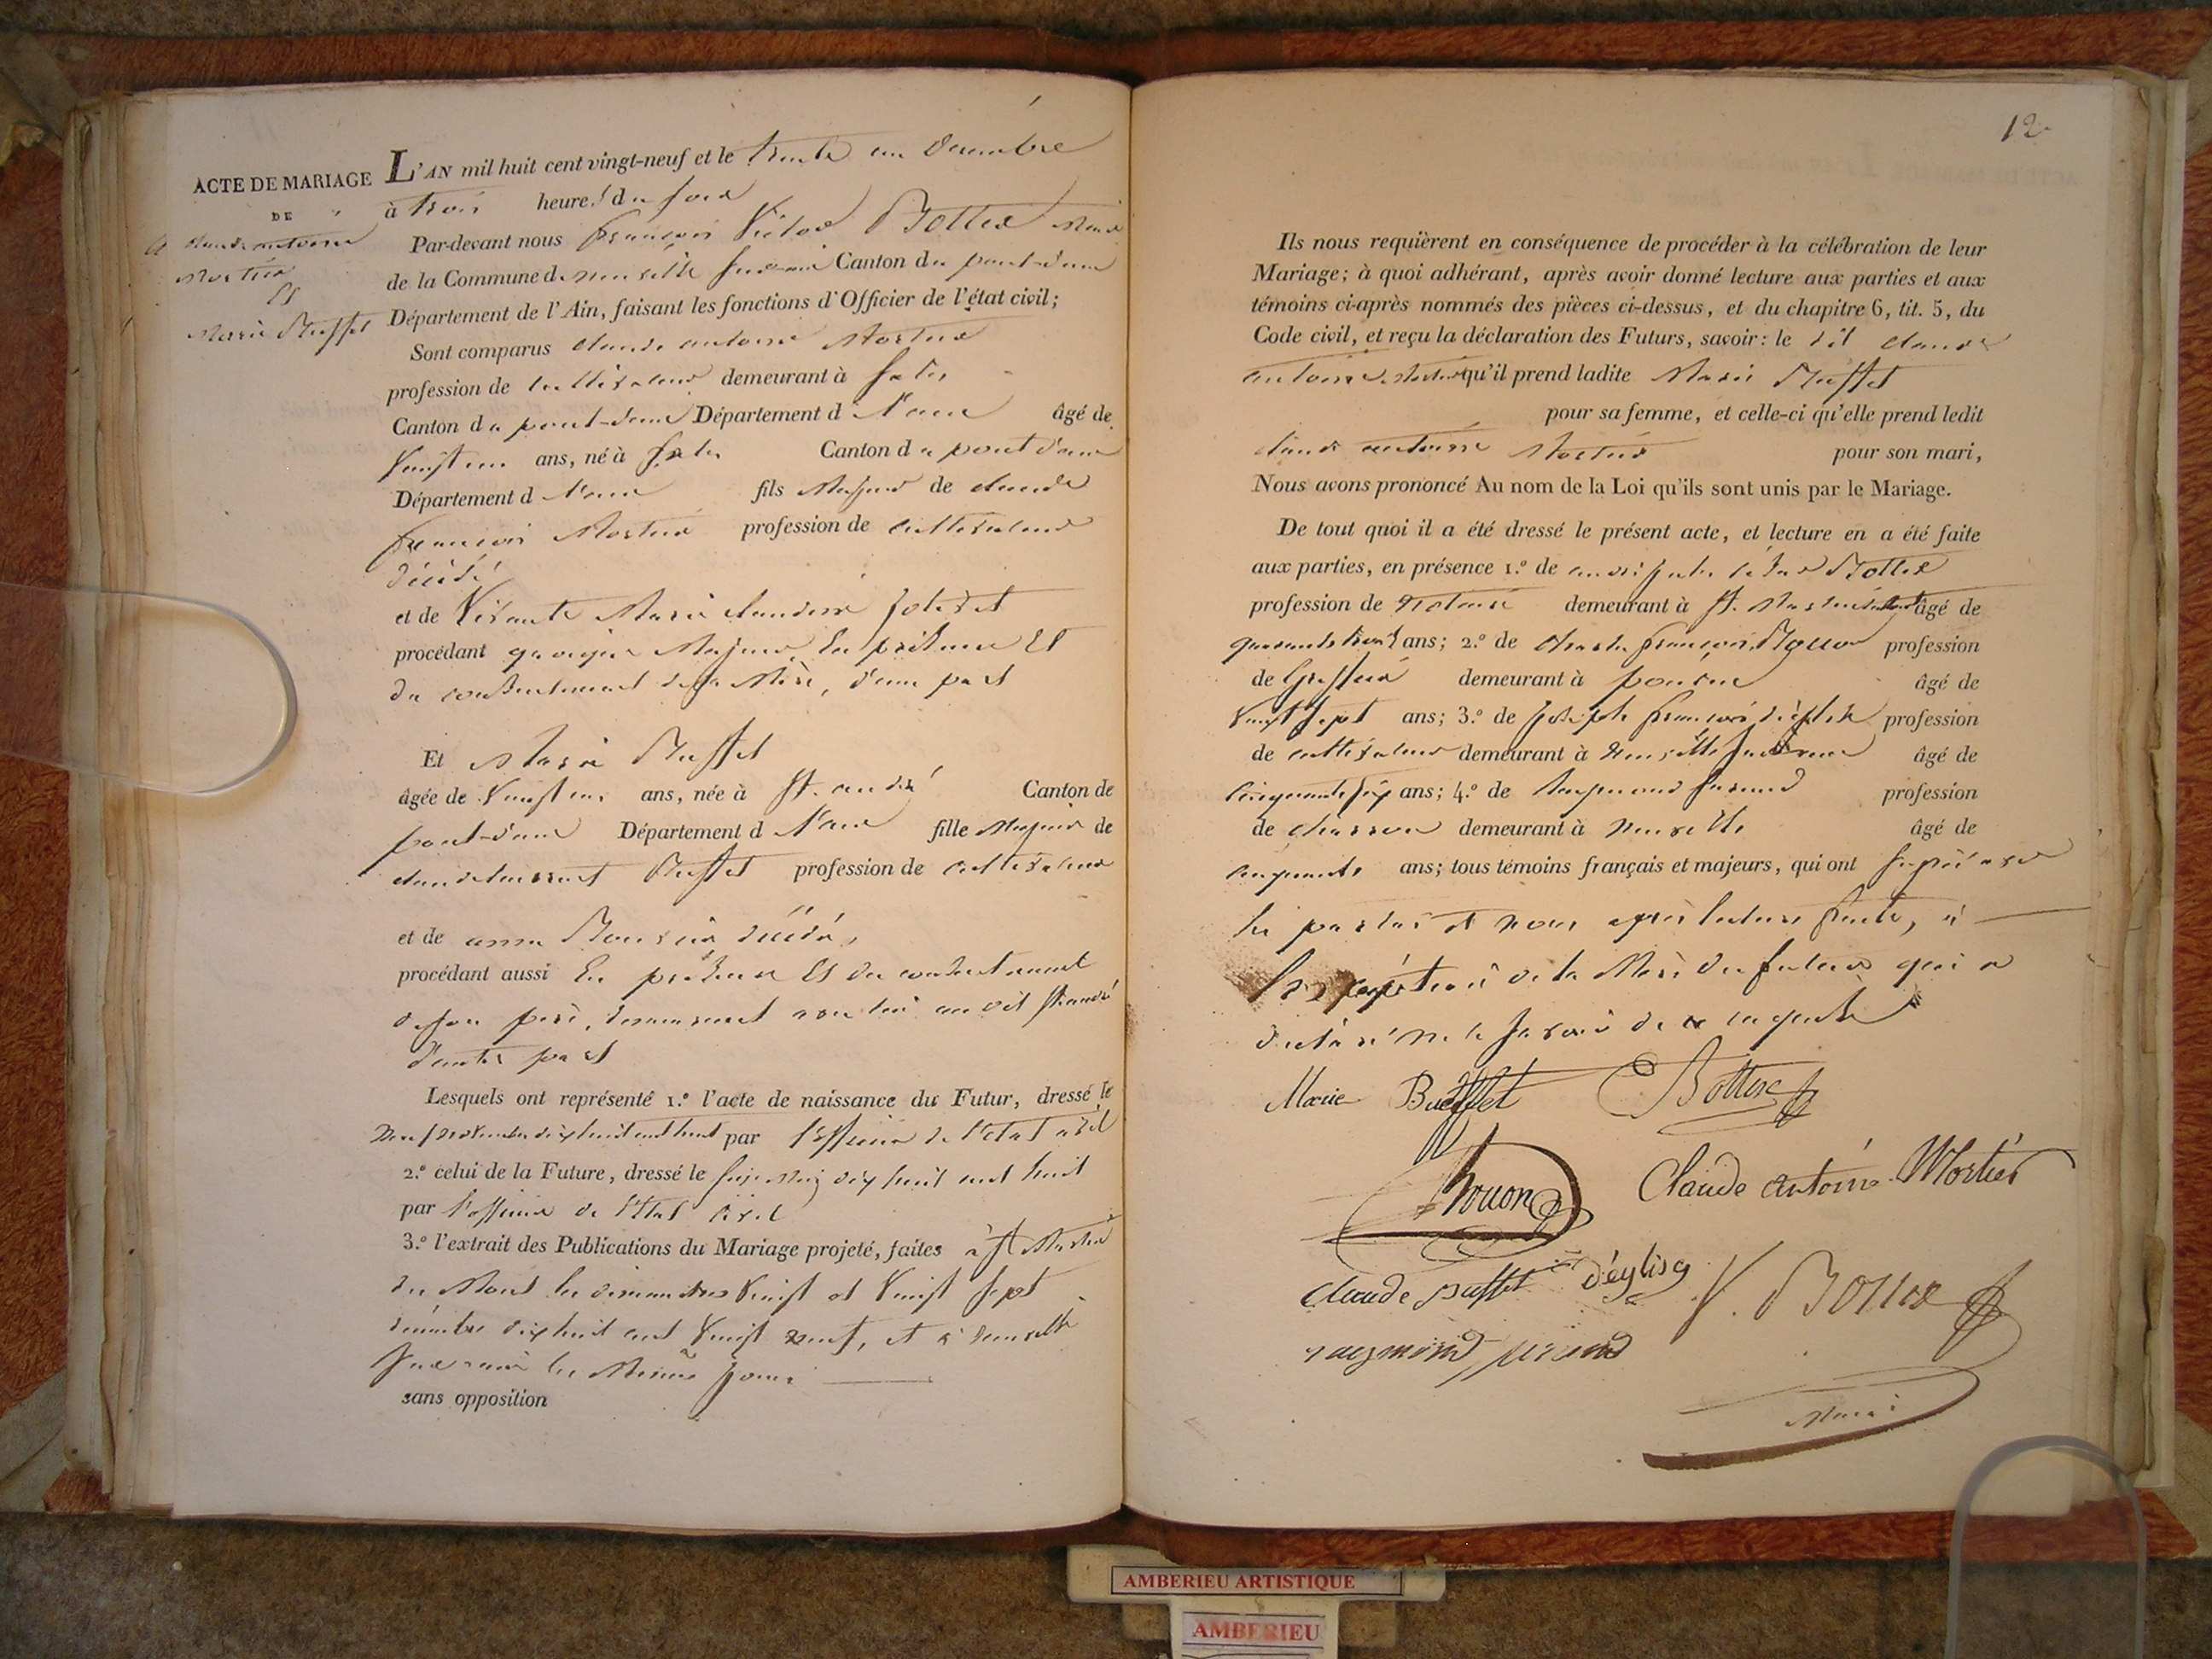 ACTE DE MARIAGE
DE
Claude antoine
Mortier
Et
Marie Buffet
L'AN mil huit cent vingt-neuf et le trente un décembre
à trois heures du soir
Par-devant nous françois Victor Bottex Maire
de la Commune de neuville sur ain Canton du pont-d'ain
Département de l'Ain, faisant les fonctions d'Officier de l'état civil;
Sont comparus claude antoine Mortier
profession de cultivateur demeurant à
Canton du pont-d'ain Département d l'ain âgé de
Vingt un ans, né à Canton du pont d'ain
Département d l'ain fils Majeur de claude
françois Mortier profession de cultivateur
décédé
et de Vivante Marie claudine
procédant quoique Majeur en présence Et
du consentement de sa Mère, d'une part
Et Marie Buffet
âgée de Vingt un ans, née à St. andré Canton de
pont-d'ain Département d l'ain fille Majeure de
claude Buffet profession de cultivateur
et de anne décédée,
procédant aussi En présence Et du consentement
de son père, demeurant avec lui au dit St andré
d'autre part
Lesquels ont représenté 1.º l'acte de naissance du Futur, dressé le
neuf novembre dix huit cent huit par l'officier de l'état civil
2.º celui de la Future, dressé le six Mai dix huit cent huit
par l'officier de l'Etat civil
3.º l'extrait des Publications du Mariage projeté, faites à St Martin
du Mont les dimanches Vingt et Vingt sept
décembre dix huit cent Vingt neuf, et à neuville
sur ain les Mêmes jours
sans opposition
12
Ils nous requièrent en conséquence de procéder à la célébration de leur
Mariage; à quoi adhérant, après avoir donné lecture aux parties et aux
témoins ci-après nommés des pièces ci-dessus, et du chapitre 6, tit. 5, du
Code civil, et reçu la déclaration des Futurs, savoir: le dit claude
antoine Mortier qu'il prend ladite Marie Buffet
pour sa femme, et celle-ci qu'elle prend ledit
claude antoine Mortier pour son mari,
Nous avons prononcé Au nom de la Loi qu'ils sont unis par le Mariage.
De tout quoi il a été dressé le présent acte, et lecture en a été faite
aux parties, en présence 1.º de Bottex
profession de notaire demeurant à St. Martin du Mont âgé de
quarante trois ans; 2.º de Charles françois profession
de Greffier demeurant à âgé de
Vingt sept ans; 3.º de Joseph françois profession
de cultivateur demeurant à neuville sur ain âgé de
cinquante six ans; 4.º de Raymond profession
de demeurant à neuville âgé de
cinquante ans; tous témoins français et majeurs, qui ont signé avec
les parties et nous après lecture faite, à
l'exception de la Mère du futur qui a
déclaré ne le savoir de ce enquise
Marie Buffet Bottex
Claude antoine Mortier
claude buffet V. Bottex
raymond
Maire
AMBERIEU ARTISTIQUE
AMBERIEU